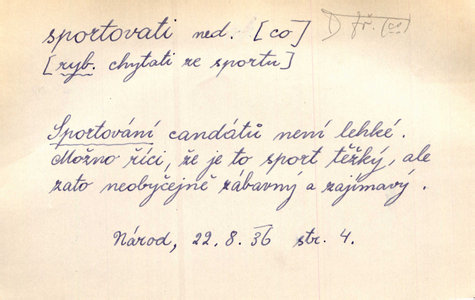 sportovati ned. [co]
[ryb. chytati ze sportu]
Sportování candátů není lehké.
Možno říci, že je to sport těžký, ale
zato neobyčejně zábavný a zajímavý.
Národ, 22. 8. 36 str. 4.